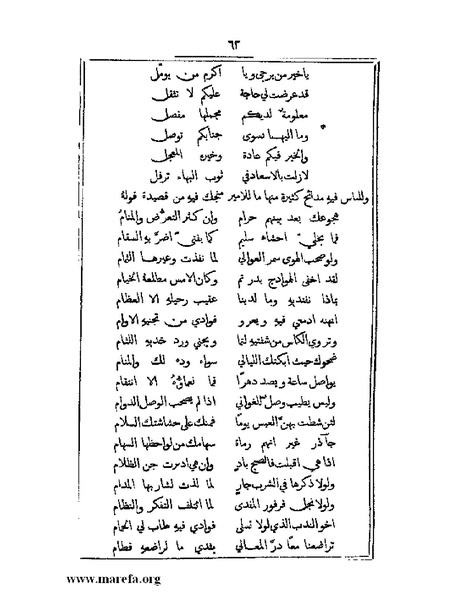 ٦٢
ياخير من يرجى ويا اكرم من يومل
قد عرضت لي حاجة عليكم لا تثقل
معلومة لديكم مجملها مفصل
وما اليها سوى جنابكم توصل
والخير فيكم عادة وخيره المعجل
لازلت بالاسعاد في ثوب البهاء ترفل
وللناس فيه مدائح كثيرة منها ما للامير منجك فيه من قصيدة قوله
هجوعك بعد بينهم حرام وان كثر التعرض والمنام
فما بخلي احشاء سليم كما بفتى اضر به السقام
ولو صحب الهوى سمر العوالي لما نفذت وغيرها الثمام
لقد اخفى الهوادج بدر تم وكان الامس مطلعه الخيام
بماذا نفتديه وما لدينا عقيب رحيله الا العظام
انهنه ادمعي فيه ويعرو فوادي من تجنيه الاوام
وتروي الكاس من شفتيه لثما ويجني ورد خديه اللثام
ضحوك حيث ابكتك الليالي سواء وده لك والمنام
يواصل ساعة ويصد دهرا فما نعماؤه الا انتقام
وليس يطيب وصل للغواني اذا لم يصحب الوصل الدوام
لئن شطت بهن العيس يوما فمنك على حشاشتك السلام
جآذر غير انهم رماة سهامك من لواحظها السهام
اذا هي اقبلت فالصبح باد وان هي ادبرت جن الظلام
ولولا ذكرها في الشرب جار لما لذت لشاربها المدام
ولولا نجل فرفور المندى لما ائتلف التفكر والنظام
اخو الندب الذي لولا تسلى فوادي فيه طاب لي الحمام
تراضعنا معا در المعالي بثدي ما لراضعه فطام
www.marefa.org